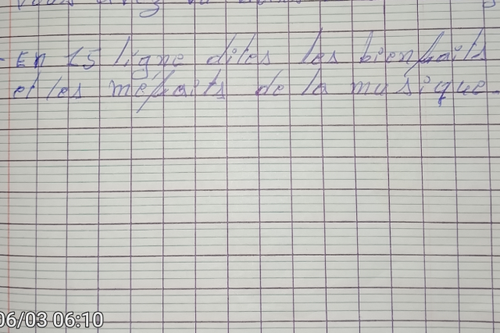 - En 15 ligne dites les bienfaits
et les méfaits de la musique.
06/03 06:10